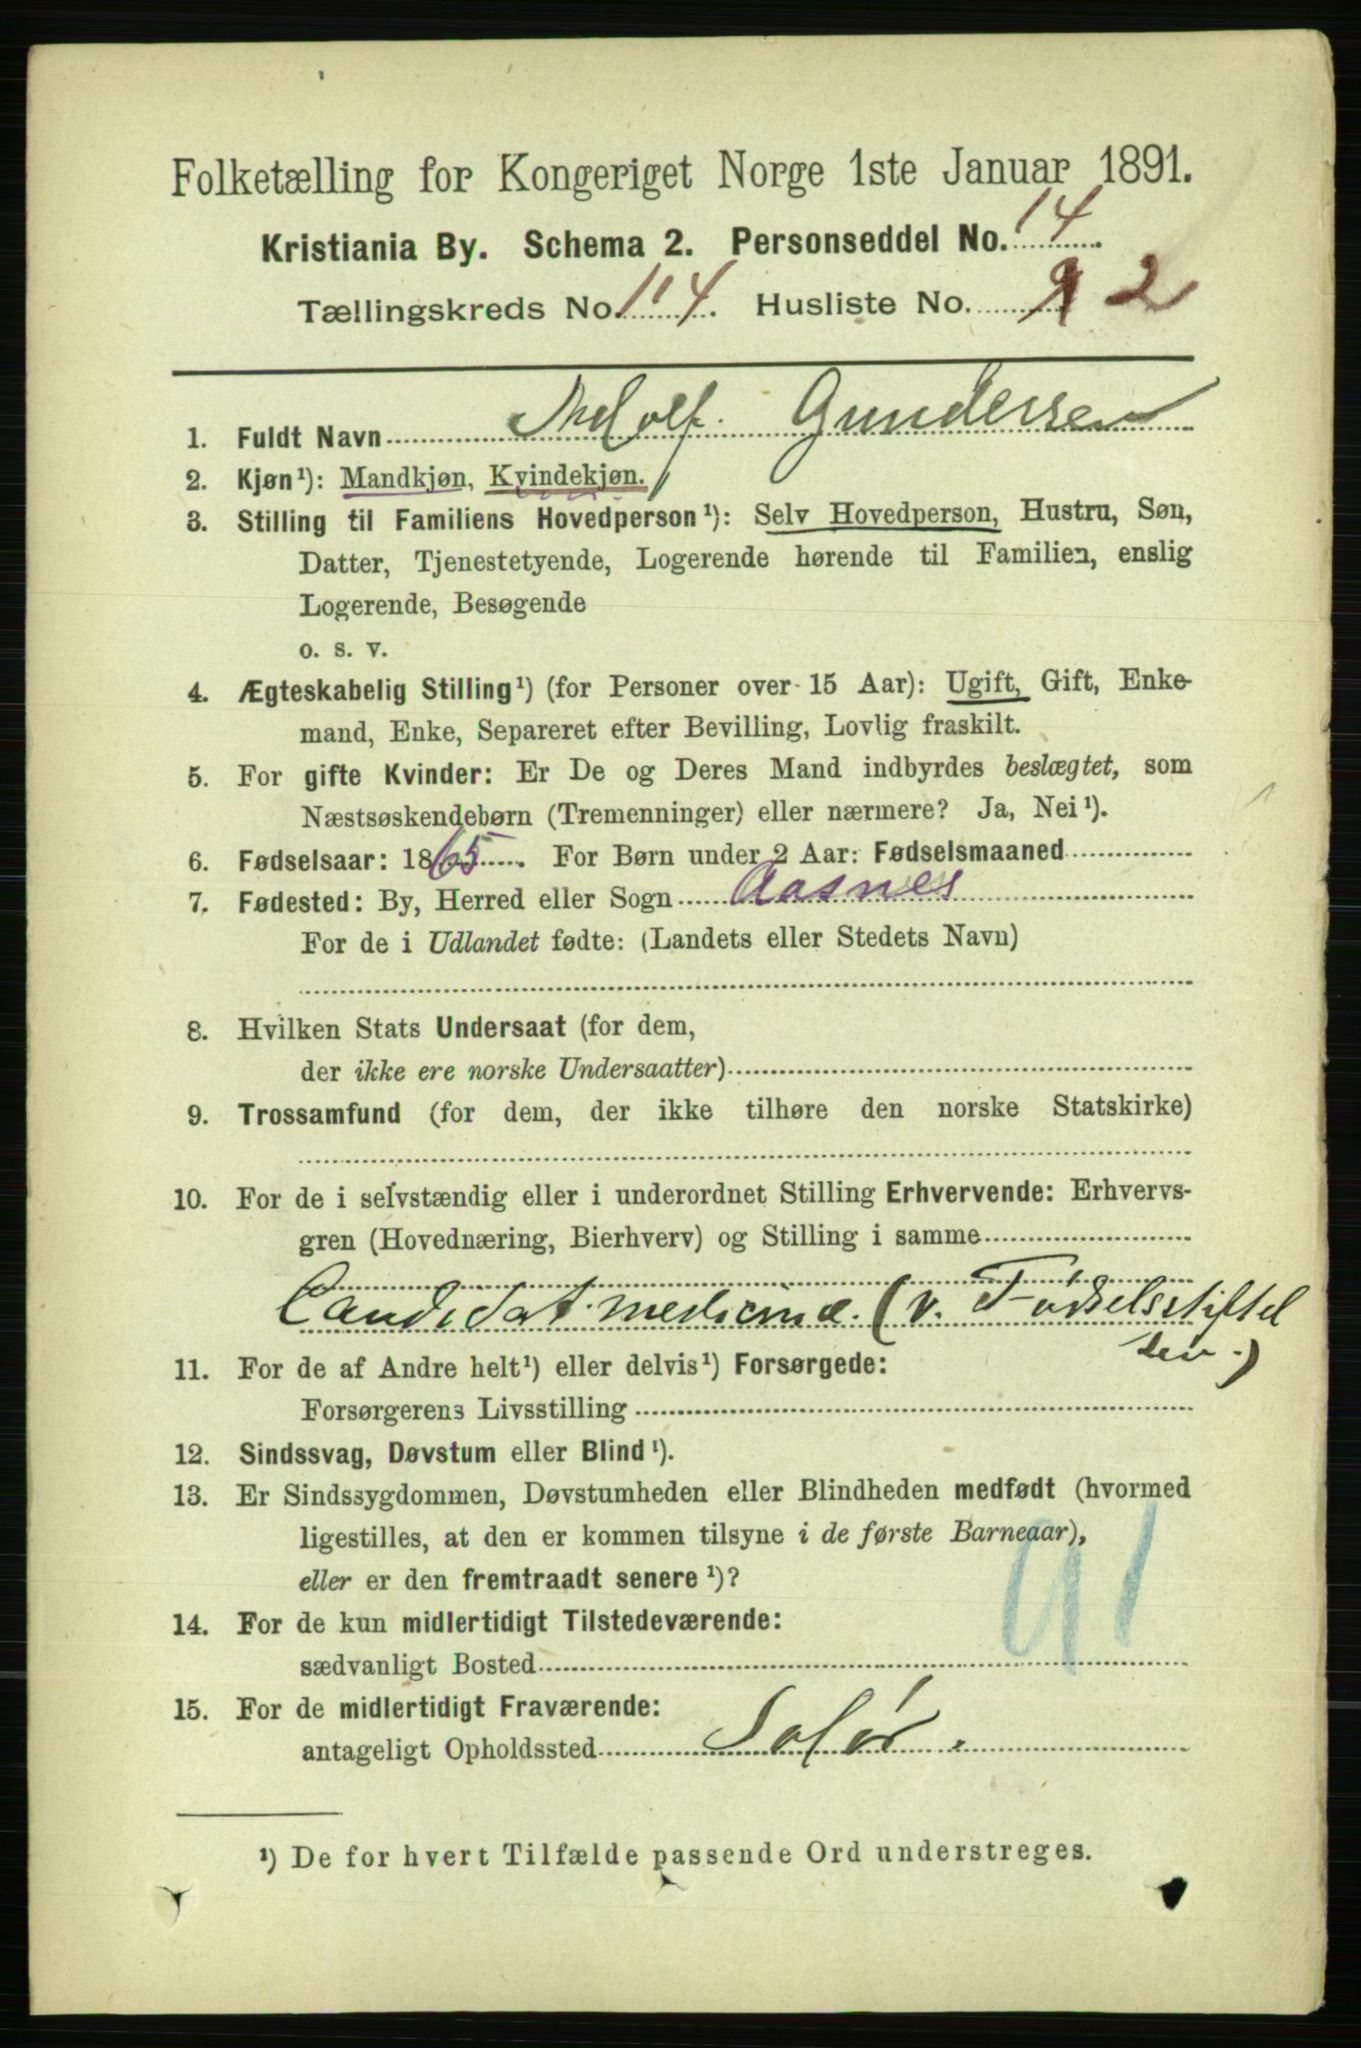 Folketælling for Kongeriget Norge 1ste Januar 1891.
Kristiania By. Schema 2. Personseddel No. 14
Tællingskreds No. 114. Husliste No. 2
1. Fuldt Navn Adolf Gundersen
2. Kjøn¹): Mandkjøn, Kvindekjøn.
3. Stilling til Familiens Hovedperson¹): Selv Hovedperson, Hustru, Søn,
Datter, Tjenestetyende, Logerende hørende til Familien, enslig
Logerende, Besøgende
o. s. v.
4. Ægteskabelig Stilling¹) (for Personer over 15 Aar): Ugift, Gift, Enke-
mand, Enke, Separeret efter Bevilling, Lovlig fraskilt.
5. For gifte Kvinder: Er De og Deres Mand indbyrdes beslægtet, som
Næstsøskendebørn (Tremenninger) eller nærmere? Ja, Nei¹).
6. Fødselsaar: 1865. For Børn under 2 Aar: Fødselsmaaned
7. Fødested: By, Herred eller Sogn Aasnes
For de i Udlandet fødte: (Landets eller Stedets Navn)
8. Hvilken Stats Undersaat (for dem,
der ikke ere norske Undersaatter)
9. Trossamfund (for dem, der ikke tilhøre den norske Statskirke)
10. For de i selvstændig eller i underordnet Stilling Erhvervende: Erhvervs-
gren (Hovednæring, Bierhverv) og Stilling i samme
Candidat medicinæ. (v. Fødselsstiftel
sen.)
11. For de af Andre helt¹) eller delvis¹) Forsørgede:
Forsørgerens Livsstilling
12. Sindssvag, Døvstum eller Blind¹).
13. Er Sindssygdommen, Døvstumheden eller Blindheden medfødt (hvormed
ligestilles, at den er kommen tilsyne i de første Barneaar),
eller er den fremtraadt senere¹)?
91
14. For de kun midlertidigt Tilstedeværende:
sædvanligt Bosted
15. For de midlertidigt Fraværende:
antageligt Opholdssted Solør.
¹) De for hvert Tilfælde passende Ord understreges.